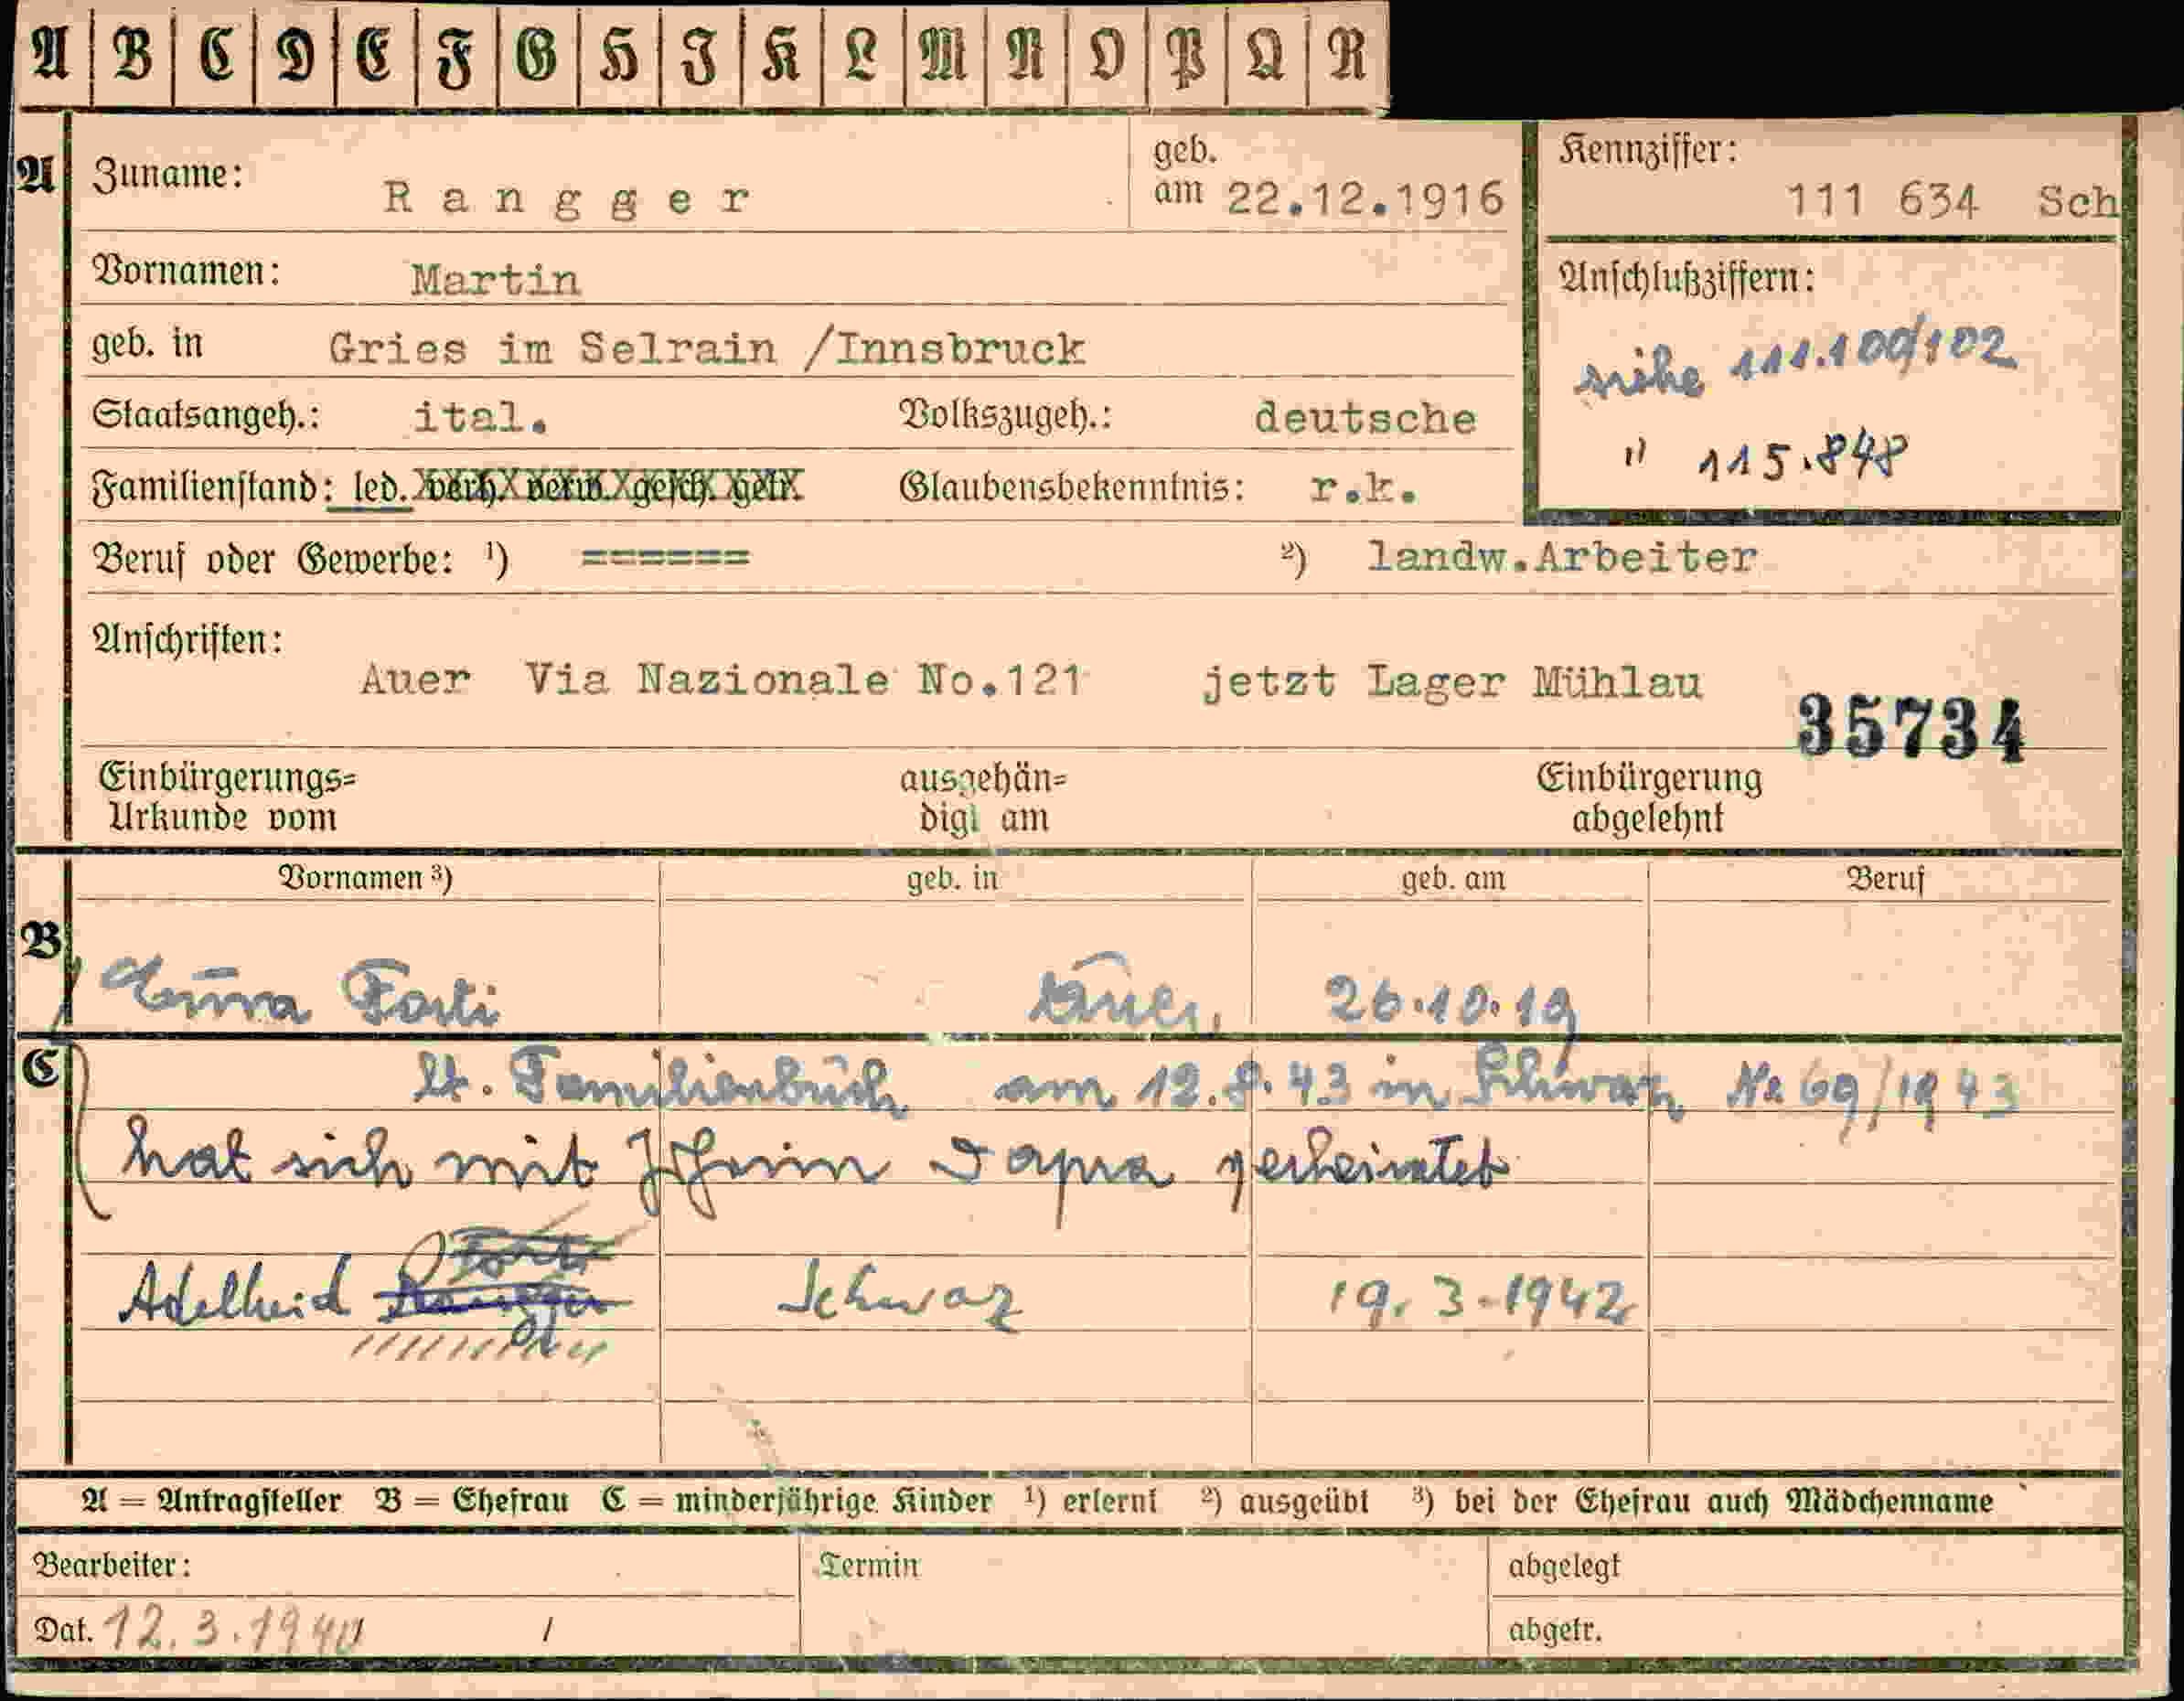 A B C D E F G H I K L M N O P Q R
A Zuname: Rangger geb. am 22.12.1916 Kennziffer: 111 634 Sch
Vornamen: Martin Anschlußziffern:
geb. in Gries im Selrain /Innsbruck siehe 111.100/102
Staatsangeh.: ital. Volkszugeh.: deutsche " 115.848
Familienstand: led. verh. verw. gesch. getr. Glaubensbekenntnis: r.k.
Beruf oder Gewerbe: ¹) ====== ²) landw.Arbeiter
Anschriften:
Auer Via Nazionale No.121 jetzt Lager Mühlau
35734
Einbürgerungs= ausgehän= Einbürgerung
Urkunde vom digt am abgelehnt
Vornamen ³) geb. in geb. am Beruf
B
Anna Forti Auer, 26.10.19
C lt. Familienbuch am 12.8.43 in Schwaz No 69/1943
hat sich mit verheiratet
Forti
Adelheid Rangger Schwaz 19.3.1942
A = Antragsteller B = Ehefrau C = minderjährige Kinder ¹) erlernt ²) ausgeübt ³) bei der Ehefrau auch Mädchenname
Bearbeiter: Termin abgelegt
Dat. 12.3.1940 / abgetr.